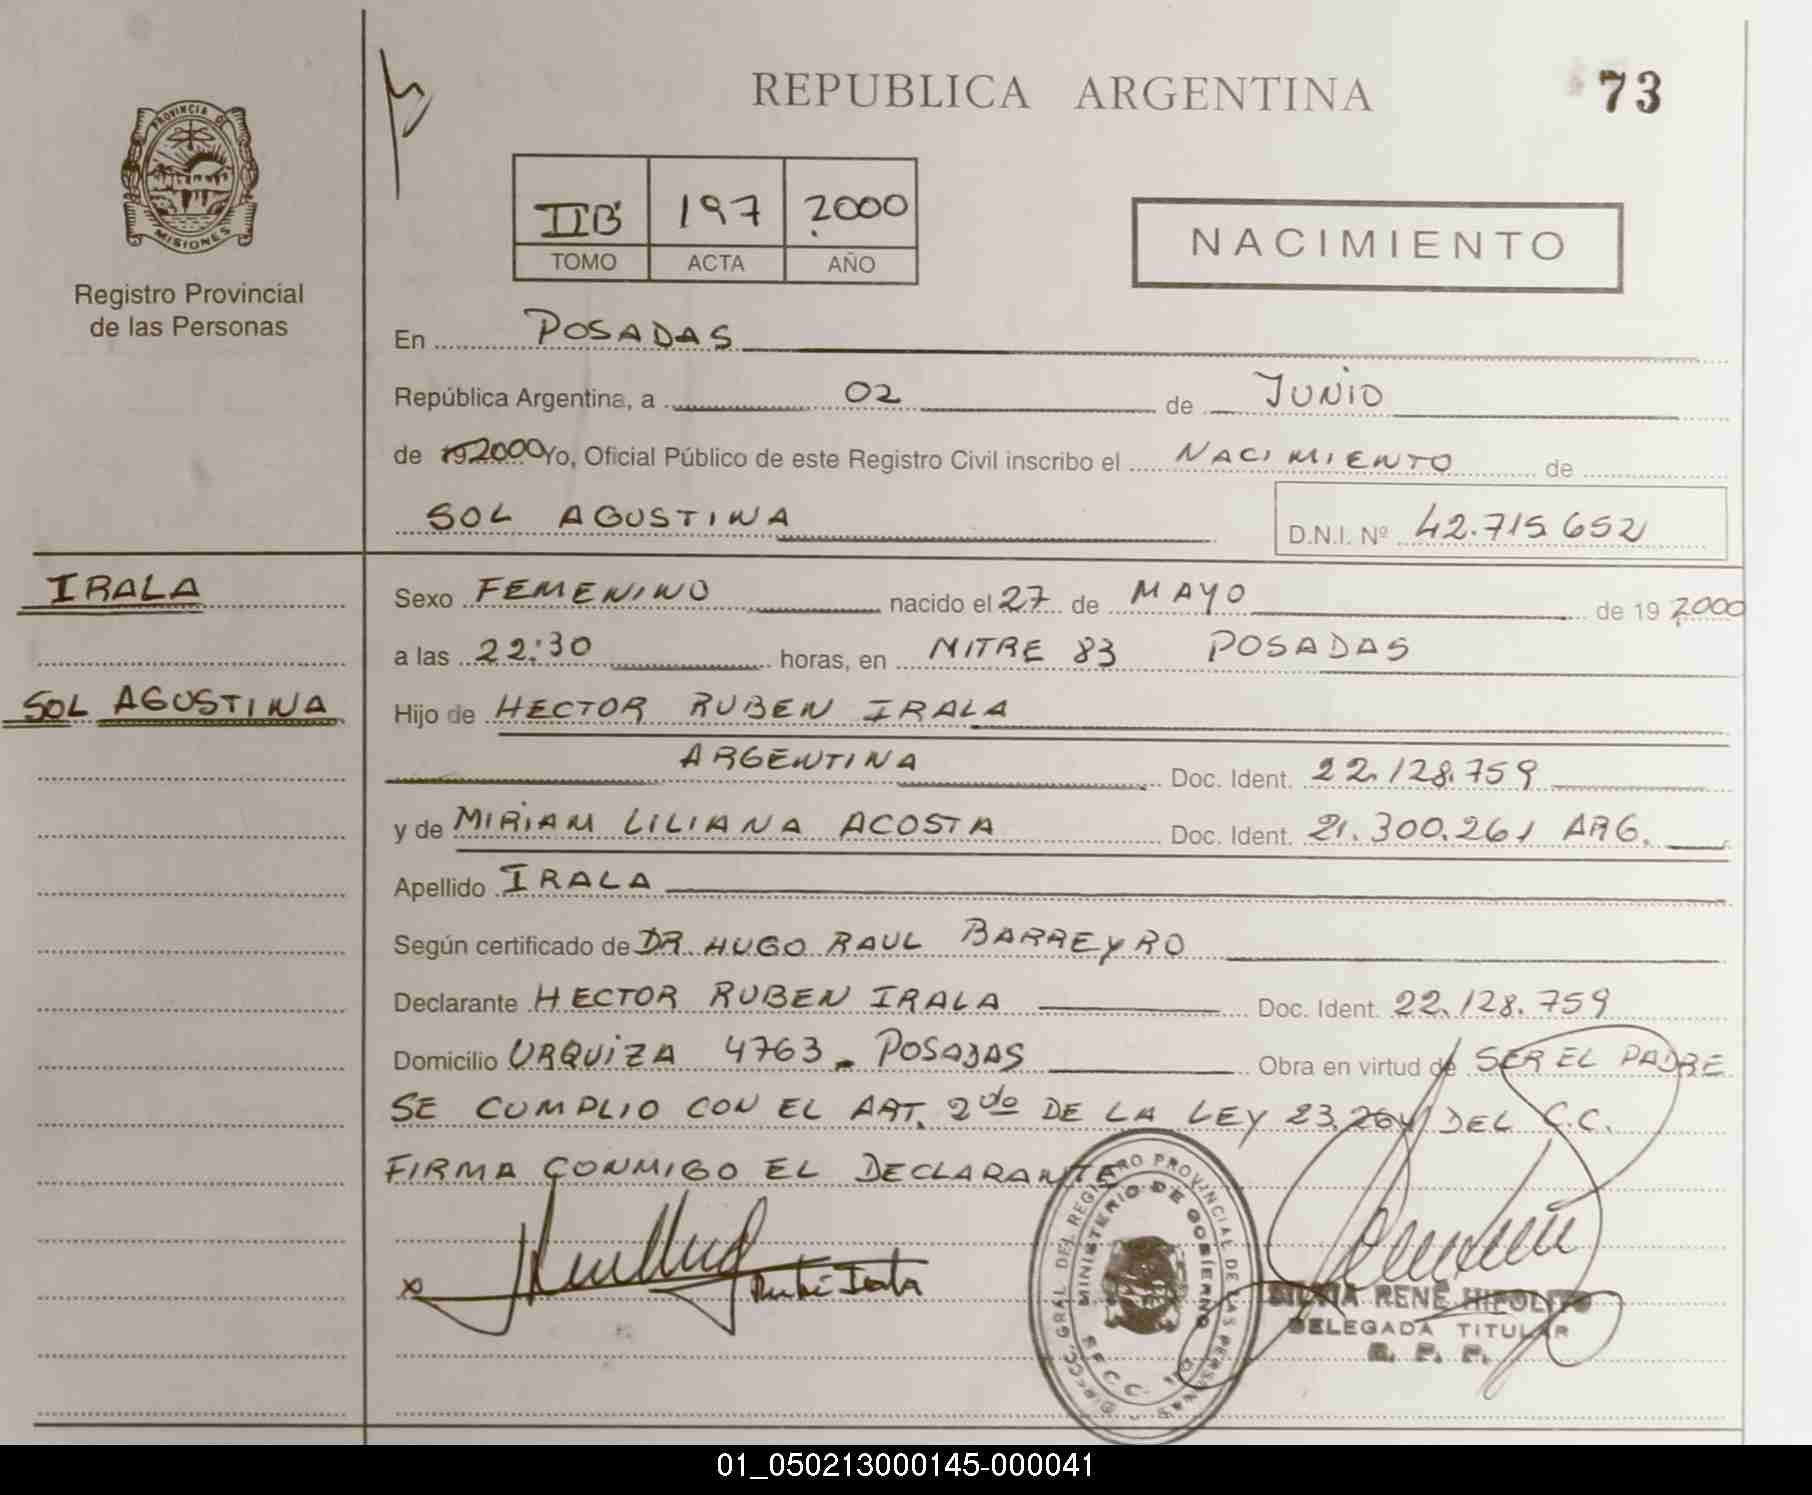 REPUBLICA ARGENTINA
73
PROVINCIA DE
MISIONES
Registro Provincial
de las Personas
IIB 197 2000
TOMO ACTA AÑO
NACIMIENTO
En POSADAS
República Argentina, a 02 de JUNIO
de 192000 Yo, Oficial Público de este Registro Civil inscribo el NACIMIENTO de
SOL AGUSTINA D.N.I. Nº 42.715.652
IRALA
SOL AGUSTINA
Sexo FEMENINO nacido el 27 de MAYO de 19 2000
a las 22:30 horas, en MITRE 83 POSADAS
Hijo de HECTOR RUBEN IRALA
ARGENTINA Doc. Ident. 22.128.759
y de MIRIAM LILIANA ACOSTA Doc. Ident. 21.300.261 ARG.
Apellido IRALA
Según certificado de DR. HUGO RAUL BARREYRO
Declarante HECTOR RUBEN IRALA Doc. Ident. 22.128.759
Domicilio URQUIZA 4763 - POSADAS Obra en virtud de SER EL PADRE
SE CUMPLIO CON EL ART. 2do DE LA LEY 23.264 DEL C.C.
FIRMA CONMIGO EL DECLARANTE
x
DIRECC. GRAL DEL REGISTRO PROVINCIAL DE LAS PERSONAS
MINISTERIO DE GOBIERNO
RENÉ HIPOLITO
DELEGADA TITULAR
R. P. P.
01_050213000145-000041